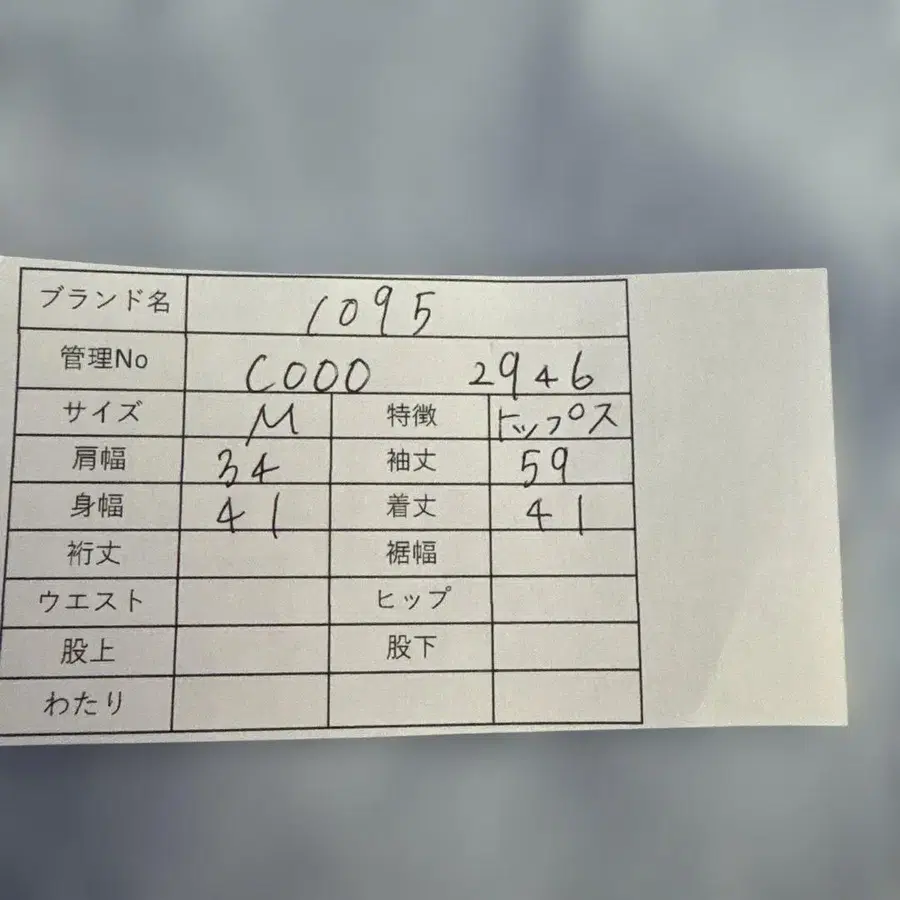 ブランド名 1095
管理No C000 2946
サイズ M 特徴 トップス
肩幅 34 袖丈 59
身幅 41 着丈 41
裄丈 裾幅
ウエスト ヒップ
股上 股下
わたり